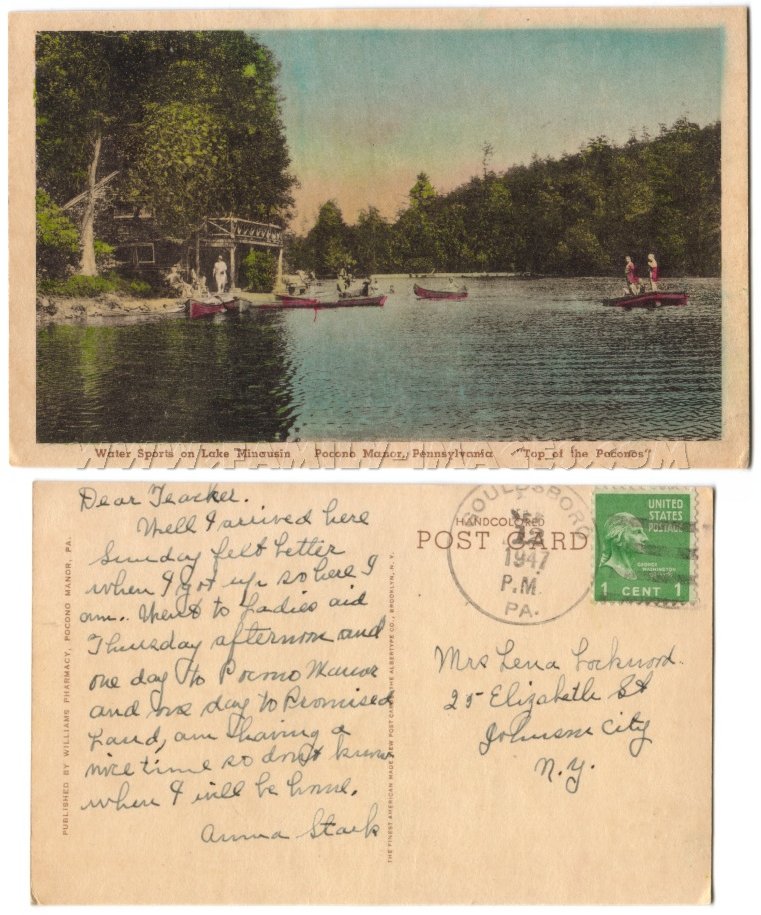 Water Sports on Lake Minausin Pocono Manor, Pennsylvania "Top of the Poconos"
WWW.FAMILY-IMAGES.COM
Dear Teacher.
Well I arrived here
Sunday felt better
when I got up so here I
am.. Went to Ladies aid
Thursday afternoon and
one day to Pocono Manor
and one day to Promised
Land, am having a
nice time so don't know
when I will be home.
Anna Stark
PUBLISHED BY WILLIAMS PHARMACY, POCONO MANOR, PA.
THE FINEST AMERICAN MADE VIEW POST CARDS THE ALBERTYPE CO., BROOKLYN, N.Y.
HANDCOLORED
POST CARD
GOULDSBORO
12
1947
P.M.
PA.
UNITED
STATES
POSTAGE
GEORGE
WASHINGTON
1 CENT 1
Mrs Lena Lockwood.
25 Elizabeth St
Johnson City
N.Y.